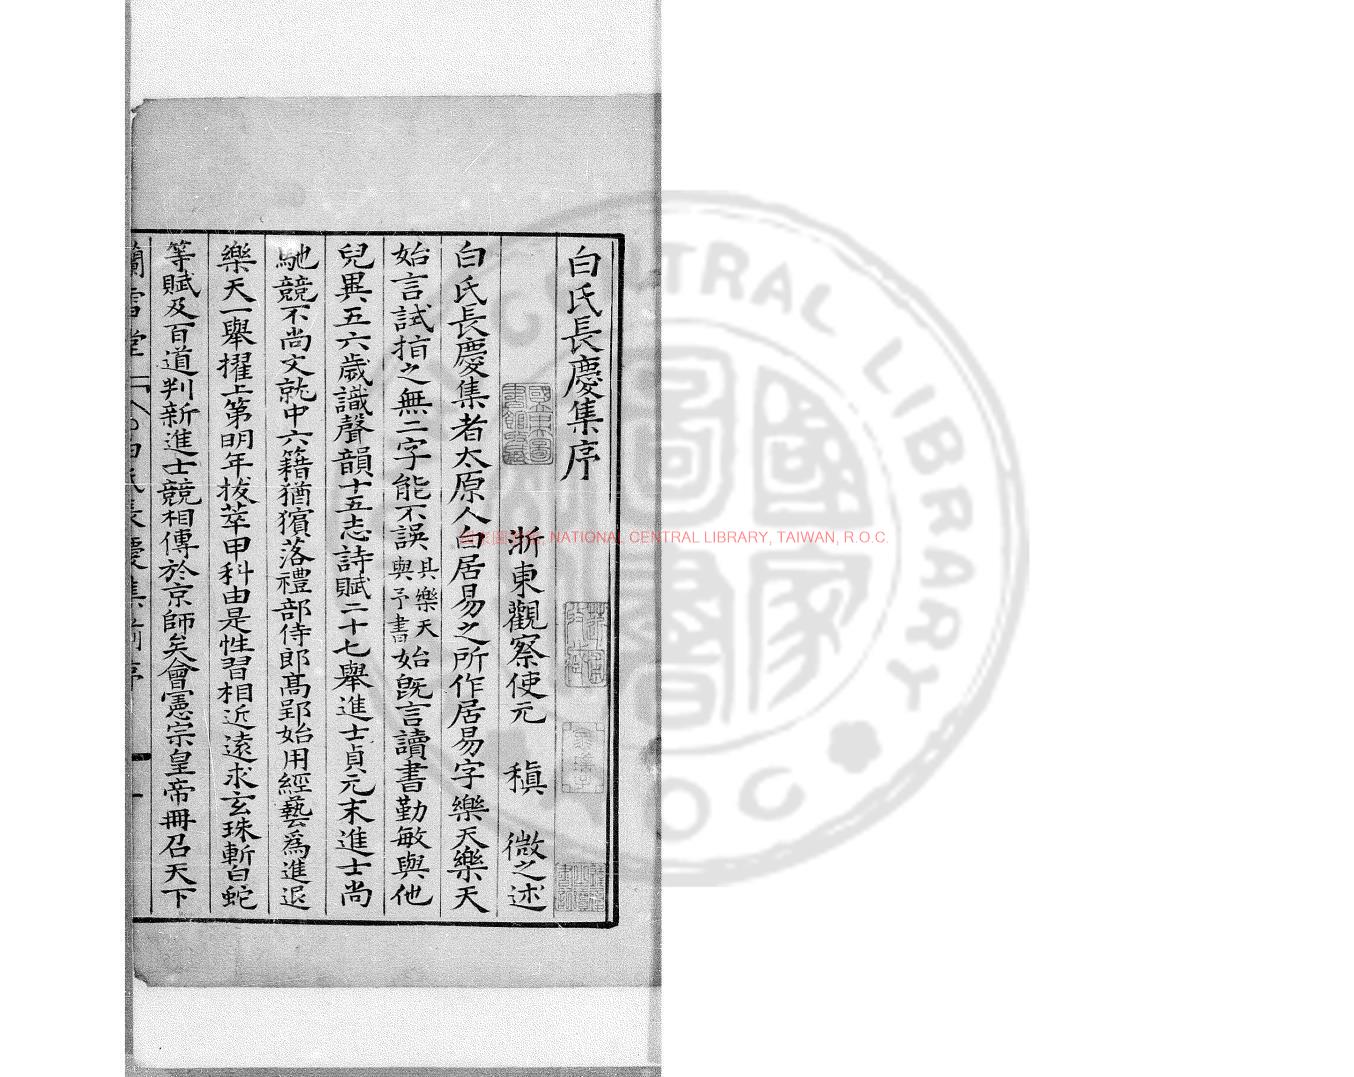 白氏長慶集序
浙東觀察使元　稹　微之述
白氏長慶集者太原人白居易之所作居易字樂天樂天
始言試指之無二字能不誤具樂天與予書始旣言讀書勤敏與他
兒異五六歲識聲韻十五志詩賦二十七舉進士貞元末進士尚
馳競不尚文就中六籍猶擯落禮部侍郎高郢始用經藝爲進退
樂天一舉擢上第明年拔萃甲科由是性習相近遠求玄珠斬白蛇
等賦及百道判新進士競相傳於京師矣會憲宗皇帝冊召天下
蘭雪堂
白氏長慶集前序
NATIONAL CENTRAL LIBRARY, TAIWAN, R.O.C.